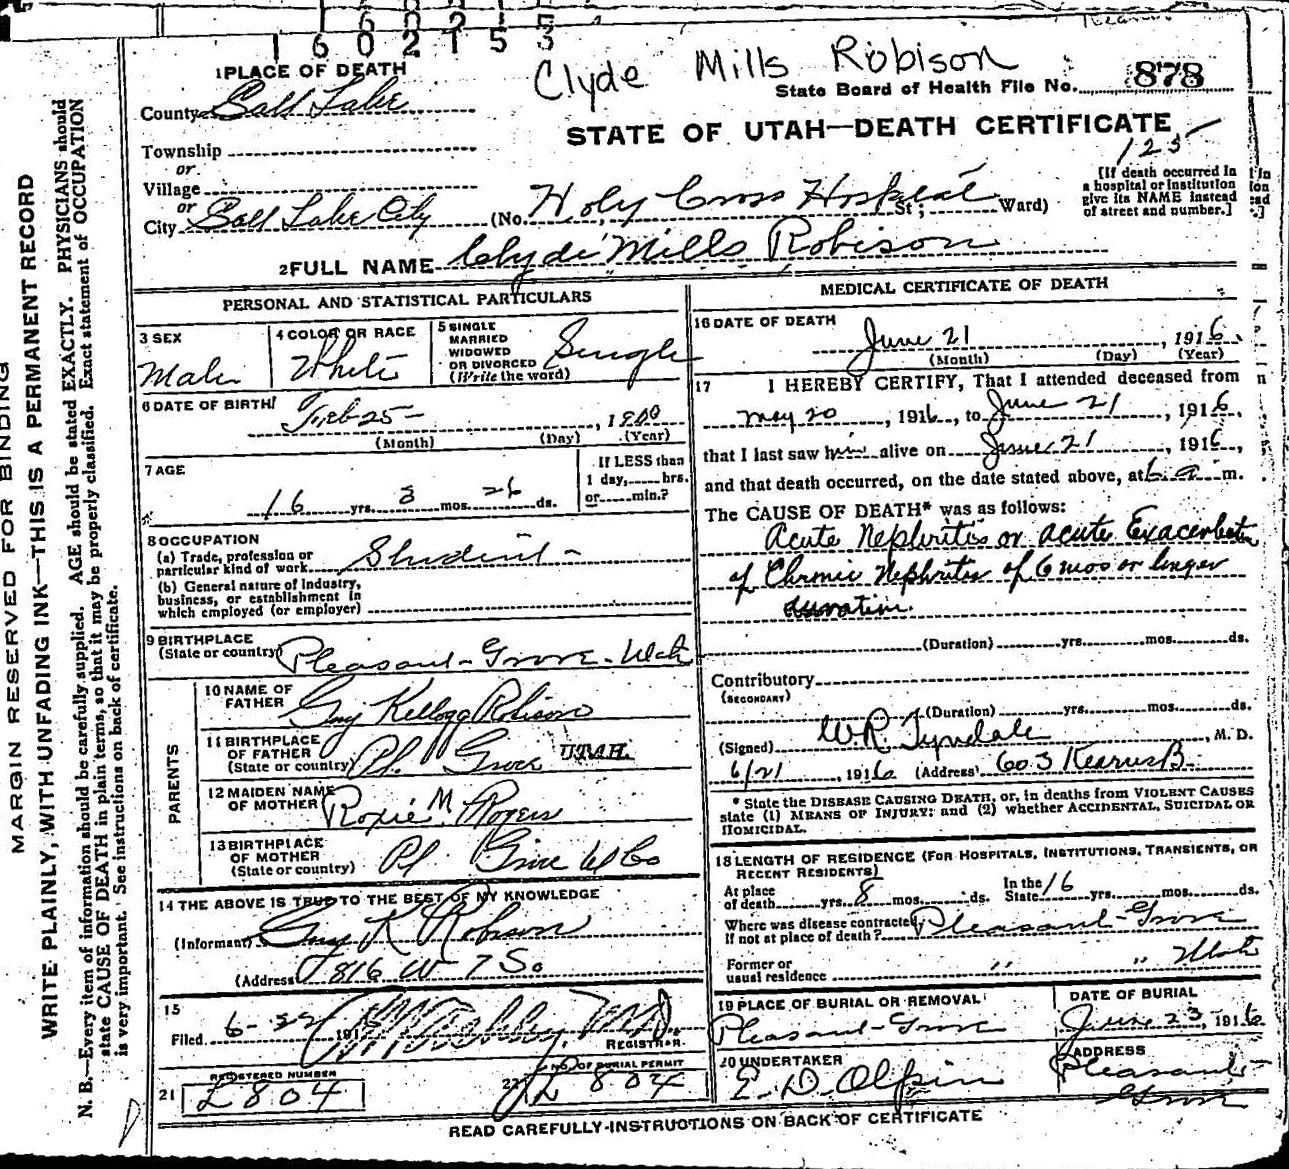 1602155
Clyde Mills Robison
State Board of Health File No. 878
STATE OF UTAH—DEATH CERTIFICATE
125
1 PLACE OF DEATH
County Salt Lake
Township
or
Village
or
City Salt Lake City (No. Holy Cross Hospital St; Ward)
[If death occurred in a hospital or institution give its NAME instead of street and number.]
2 FULL NAME Clyde Mills Robison
PERSONAL AND STATISTICAL PARTICULARS
3 SEX
Male
4 COLOR OR RACE
White
5 SINGLE MARRIED WIDOWED OR DIVORCED (Write the word)
Single
6 DATE OF BIRTH
Feb 25 , 1900
(Month) (Day) (Year)
7 AGE
16 yrs. 3 mos. 26 ds.
If LESS than 1 day, hrs. or min.?
8 OCCUPATION
(a) Trade, profession or particular kind of work Student
(b) General nature of industry, business, or establishment in which employed (or employer)
9 BIRTHPLACE
(State or country) Pleasant Grove Utah
PARENTS
10 NAME OF FATHER Guy Kellogg Robison
11 BIRTHPLACE OF FATHER (State or country) Pl. Grove UTAH.
12 MAIDEN NAME OF MOTHER Roxie M Rogers
13 BIRTHPLACE OF MOTHER (State or country) Pl Grove
14 THE ABOVE IS TRUE TO THE BEST OF MY KNOWLEDGE
(Informant) Guy K Robison
(Address) 816 W 7 So
15
Filed 6-22 191
REGISTRAR.
REGISTERED NUMBER
21 £804
22 NO. OF BURIAL PERMIT
£ 804
MEDICAL CERTIFICATE OF DEATH
16 DATE OF DEATH
June 21 , 1916
(Month) (Day) (Year)
17 I HEREBY CERTIFY, That I attended deceased from
May 20 , 1916, to June 21 , 1916,
that I last saw him alive on June 21 , 1916,
and that death occurred, on the date stated above, at 6 a m.
The CAUSE OF DEATH* was as follows:
Acute Nephritis or acute Exacerbation
of Chronic Nephritis of 6 mos or longer
duration.
(Duration) yrs. mos. ds.
Contributory
(SECONDARY)
(Duration) yrs. mos. ds.
(Signed) WR Tyndale , M. D.
6/21 , 1916 (Address) 603 Kearns B.
* State the DISEASE CAUSING DEATH, or, in deaths from VIOLENT CAUSES
state (1) MEANS OF INJURY: and (2) whether ACCIDENTAL, SUICIDAL OR
HOMICIDAL.
18 LENGTH OF RESIDENCE (FOR HOSPITALS, INSTITUTIONS, TRANSIENTS, OR
RECENT RESIDENTS)
At place of death yrs. 8 mos. ds. In the State 16 yrs. mos. ds.
Where was disease contracted, if not at place of death? Pleasant Grove
Former or usual residence " " Utah
19 PLACE OF BURIAL OR REMOVAL
Pleasant Grove
DATE OF BURIAL
June 23, 1916
20 UNDERTAKER
E. D. Olpin
ADDRESS
Pleasant Grove
READ CAREFULLY-INSTRUCTIONS ON BACK OF CERTIFICATE
MARGIN RESERVED FOR BINDING
WRITE PLAINLY, WITH UNFADING INK—THIS IS A PERMANENT RECORD
N. B.—Every item of information should be carefully supplied. AGE should be stated EXACTLY. PHYSICIANS should
state CAUSE OF DEATH in plain terms, so that it may be properly classified. Exact statement of OCCUPATION
is very important. See instructions on back of certificate.